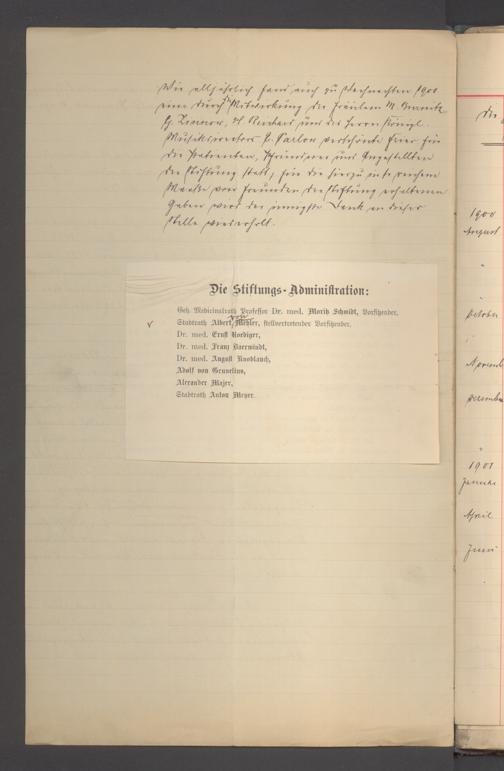 Wie alljährlich fand auch zu Weihnachten 1900
eine durch die Mitwirkung der Fräulein M.
G. und des Herrn Königl.
Musikdirectors P. Parlow verschönte Feier für
die Patienten, Pfründner und Angestellten
der Stiftung statt, für die hierzu in so reichem
Maaße von Freunden der Stiftung erhaltenen
Gaben wird der innigste Dank an dieser
Stelle wiederholt.
Die Stiftungs-Administration:
Geh. Medicinalrath Professor Dr. med. Moritz Schmidt, Vorsitzender,
Stadtrath Albert von Metzler, stellvertretender Vorsitzender,
Dr. med. Ernst Roediger,
Dr. med. Franz Baerwindt,
Dr. med. August Knoblauch,
Adolf von Grunelius,
Alexander Majer,
Stadtrath Anton Meyer.
1900
August
"
"
October
"
"
1901
Januar
April
Juni